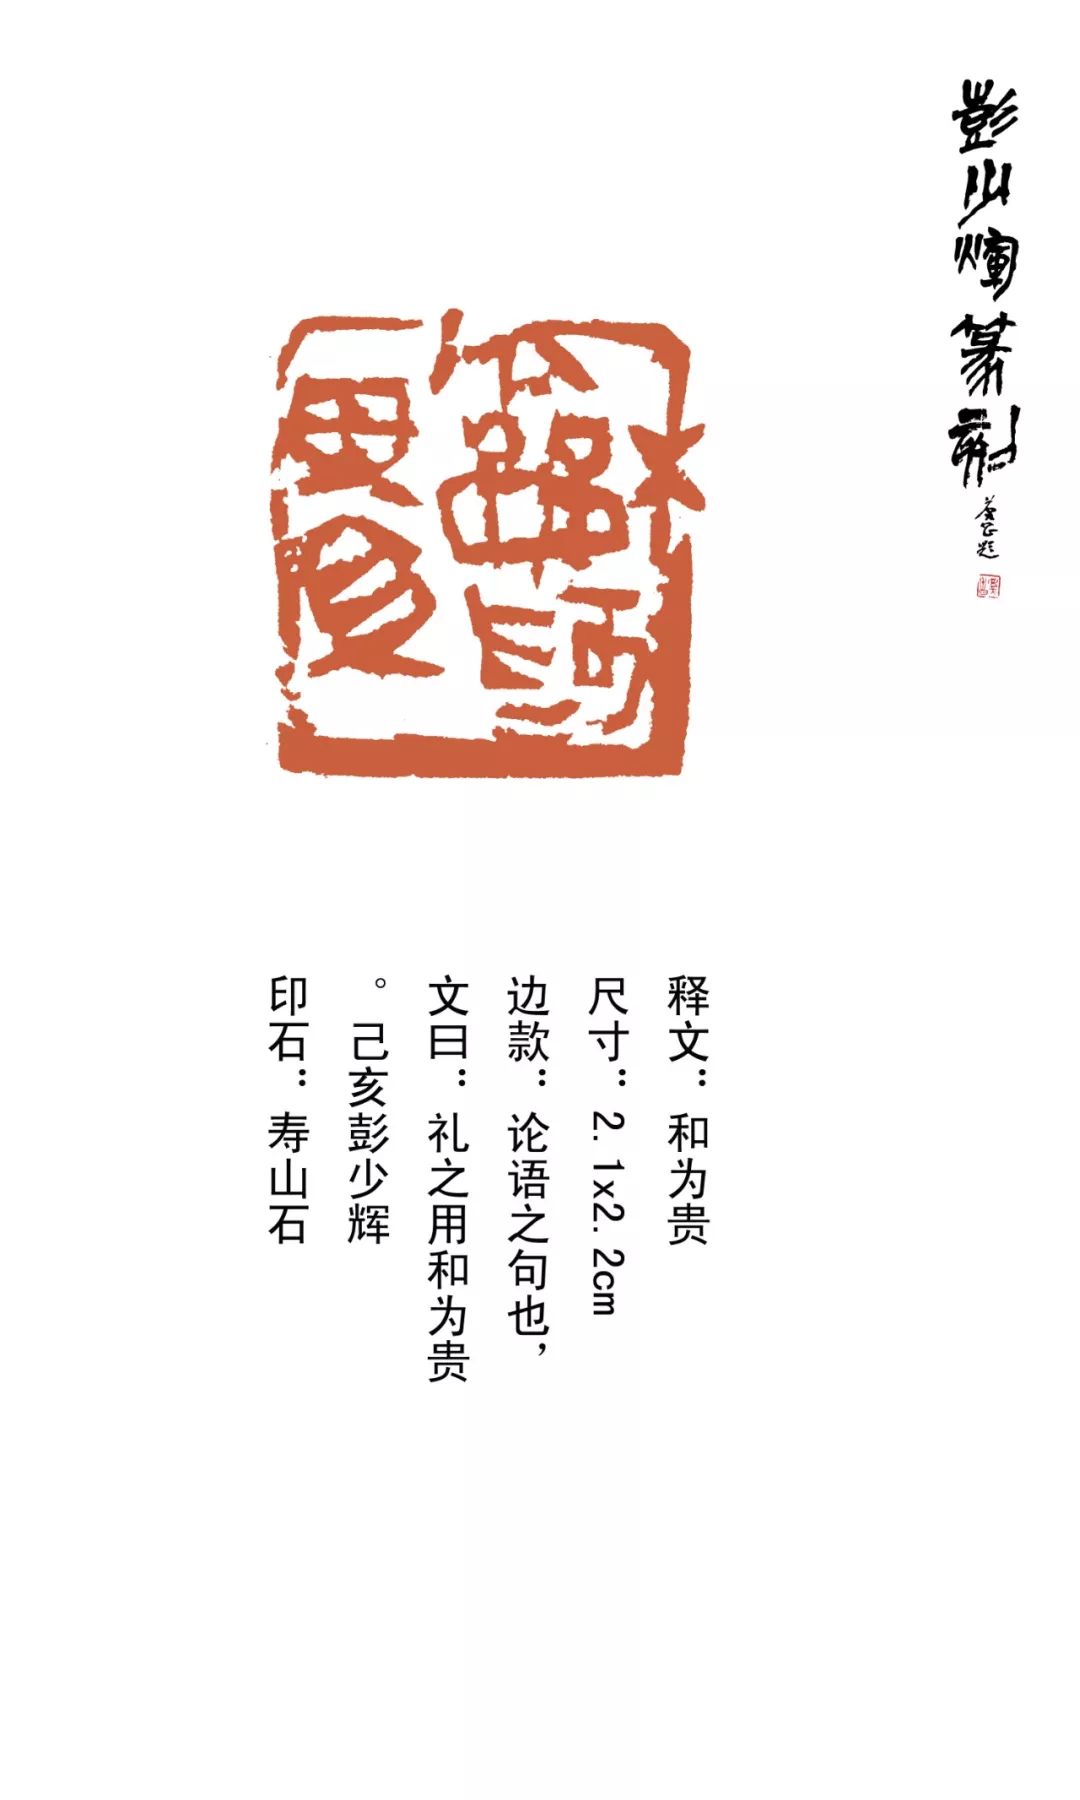 彭少煇篆刻
和为贵
释文：和为贵
尺寸：2.1x2.2cm
边款：论语之句也，
文曰：礼之用和为贵
。己亥彭少辉
印石：寿山石